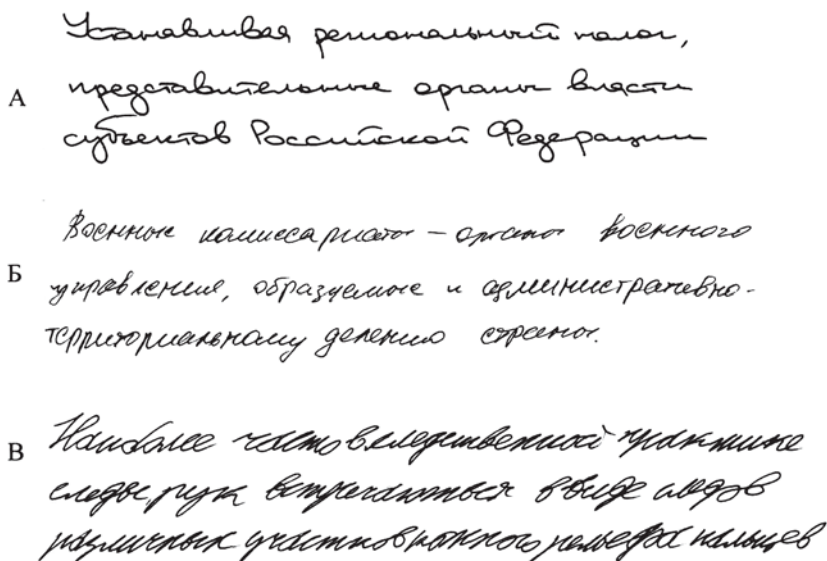 Устанавливая региональный налог,
А представительные органы власти
субъектов Российской Федерации
Военные комиссариаты – органы военного
Б управления, образуемые и административно-
территориальному делению страны.
В Наиболее часто в следственной практике
следы рук встречаются в виде следов
различных участков кожного рельефа пальцев